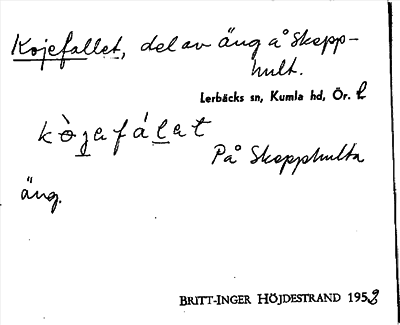 Kojefallet, del av äng å Skepp-
hult.
Lerbäcks sn, Kumla hd, Ör. l
kòjefálet
På Skepphulta
äng.
BRITT-INGER HÖJDESTRAND 1952